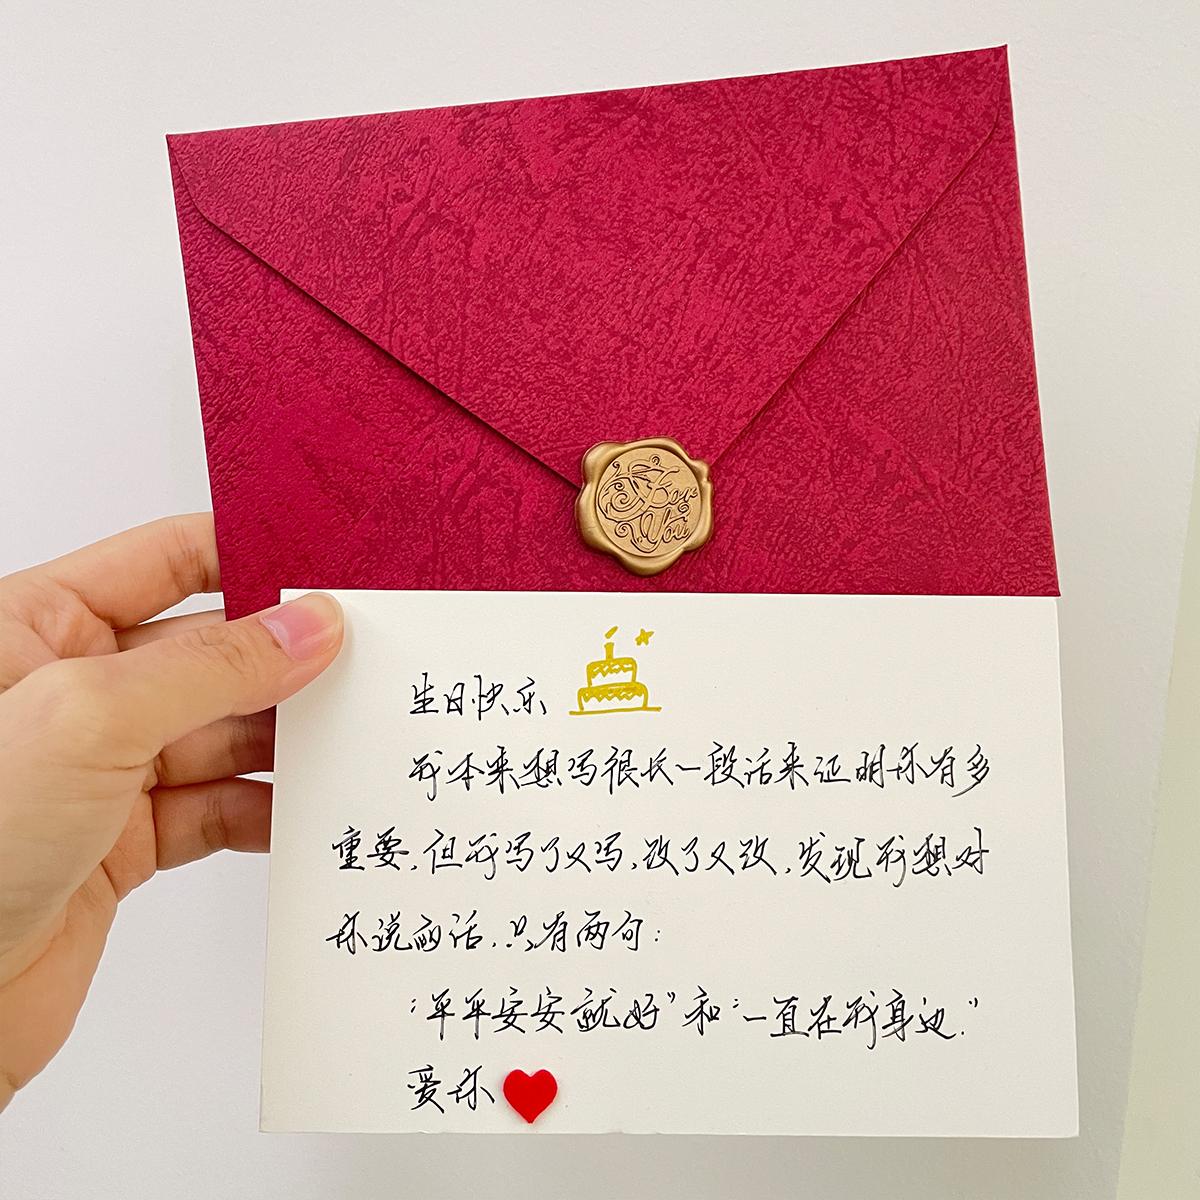 For
You
生日快乐
我本来想写很长一段话来证明你有多
重要,但我写了又写,改了又改,发现我想对
你说的话,只有两句:
“平平安安就好”和“一直在我身边.”
爱你